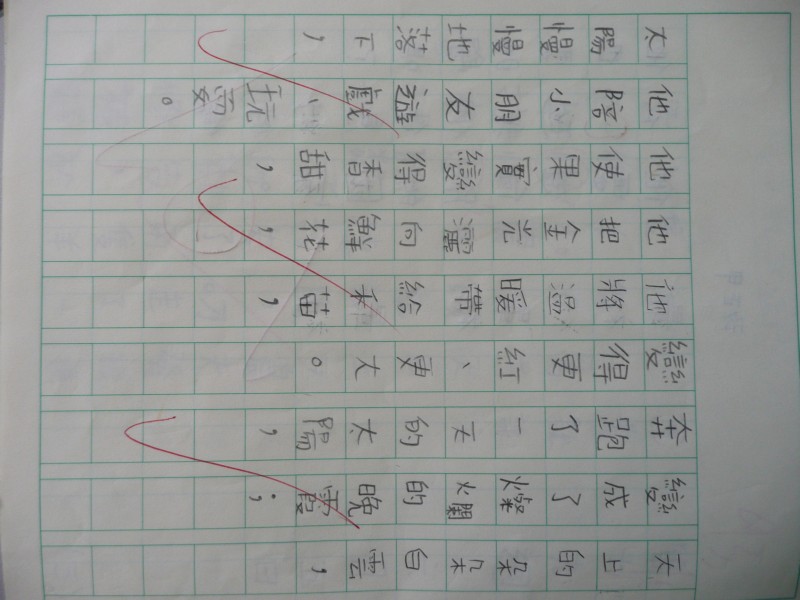 天上的朵朵白雲，
變成了燦爛的晚霞；
奔跑了一天的太陽，
變得更紅、更大。
他將溫暖帶給禾苗，
他把金光灑向鮮花，
他使果實變得香甜，
他陪小朋友遊戲、玩耍。
太陽慢慢地落下，